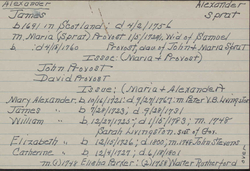 Alexander Alexander
James Sprat
b 1691 in Scotland; d 4/2/1756
m. Maria (Sprat) Provost 1/5/1724, Wid of Samuel
b d 4/9/1760 Provost, dau of John & Maria Sprat
Issue: (Maria & Provost)
John Provost
David Provost
Issue: (Maria & Alexander)
Mary Alexander b 10/16/1721 d 9/27/1767. m Peter V.B. Livingston
James " b
William " b 12/25/1725; d 1/15/1783; m. 1748
Sarah Livingston, sis of Gov.
Elizabeth " b 12/15/1726; d 1800; m. John Stevens
Catherine " b 12/4/1727; d 6/18/1801
m (1) 1748 Elisha Parker; (2) 1758 Walter Rutherford